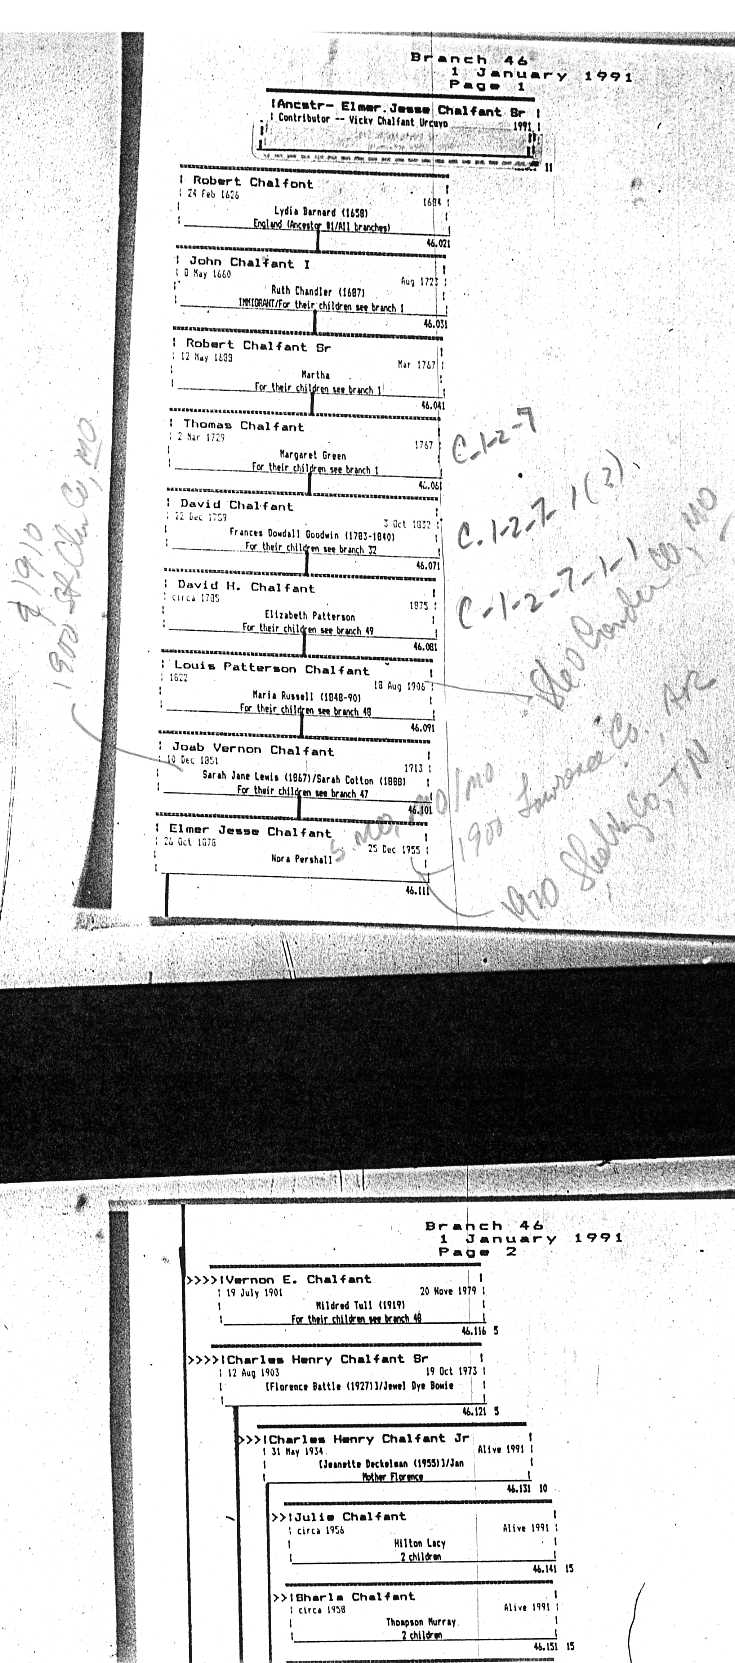 Branch 46
1 January 1991
Page 1
Ancstr- Elmer Jesse Chalfant Sr
Contributor -- Vicky Chalfant Urcuyo 1991
11
Robert Chalfont
24 Feb 1626 1684
Lydia Barnard (1658)
England (Ancestor #1/All branches)
46.021
John Chalfant I
May 1660 Aug 172
Ruth Chandler (1687)
IMMIGRANT/For their children see branch 1
46.031
Robert Chalfant Sr
12 May Mar 1767
Martha
For their children see branch 1
46.041
Thomas Chalfant
2 Mar 1729 1767
Margaret Green
For their children see branch 1
46.061
C-1-2-7
David Chalfant
22 Dec 3 Oct 1832
Frances Dowdall Goodwin (1783-1840)
For their children see branch 32
46.071
C-1-2-7-1(2).
David H. Chalfant
circa 1785 1875
Elizabeth Patterson
For their children see branch 49
46.081
C-1-2-7-1-1
Louis Patterson Chalfant
1822 18 Aug 1906
Maria Russell (1848-90)
For their children see branch 48
46.091
Co. MO
Joab Vernon Chalfant
10 Dec 1851 1913
Sarah Jane Lewis (1867)/Sarah Cotton (1888)
For their children see branch 47
46.101
& 1910
1900 St. Clair Co, MO
Elmer Jesse Chalfant
26 Oct 1878 25 Dec 1955
Nora Pershall
46.111
1900 Lawrence Co., Ark
1920 Shelby Co, TN
Branch 46
1 January 1991
Page 2
>>>>Vernon E. Chalfant
19 July 1901 20 Nove 1979
Mildred Tull (1919)
For their children see branch 48
46.116 5
>>>>Charles Henry Chalfant Sr
12 Aug 1903 19 Oct 1973
[Florence Battle (1927)]/Jewel Dye Bowie
46.121 5
>>>Charles Henry Chalfant Jr
31 May 1934 Alive 1991
[Jeanette Deckelman (1955)]/Jan
Mother Florence
46.131 10
>>Julie Chalfant
circa 1956 Alive 1991
Hilton Lacy
2 children
46.141 15
>>Sharla Chalfant
circa 1958 Alive 1991
Thompson Murray
2 children
46.151 15